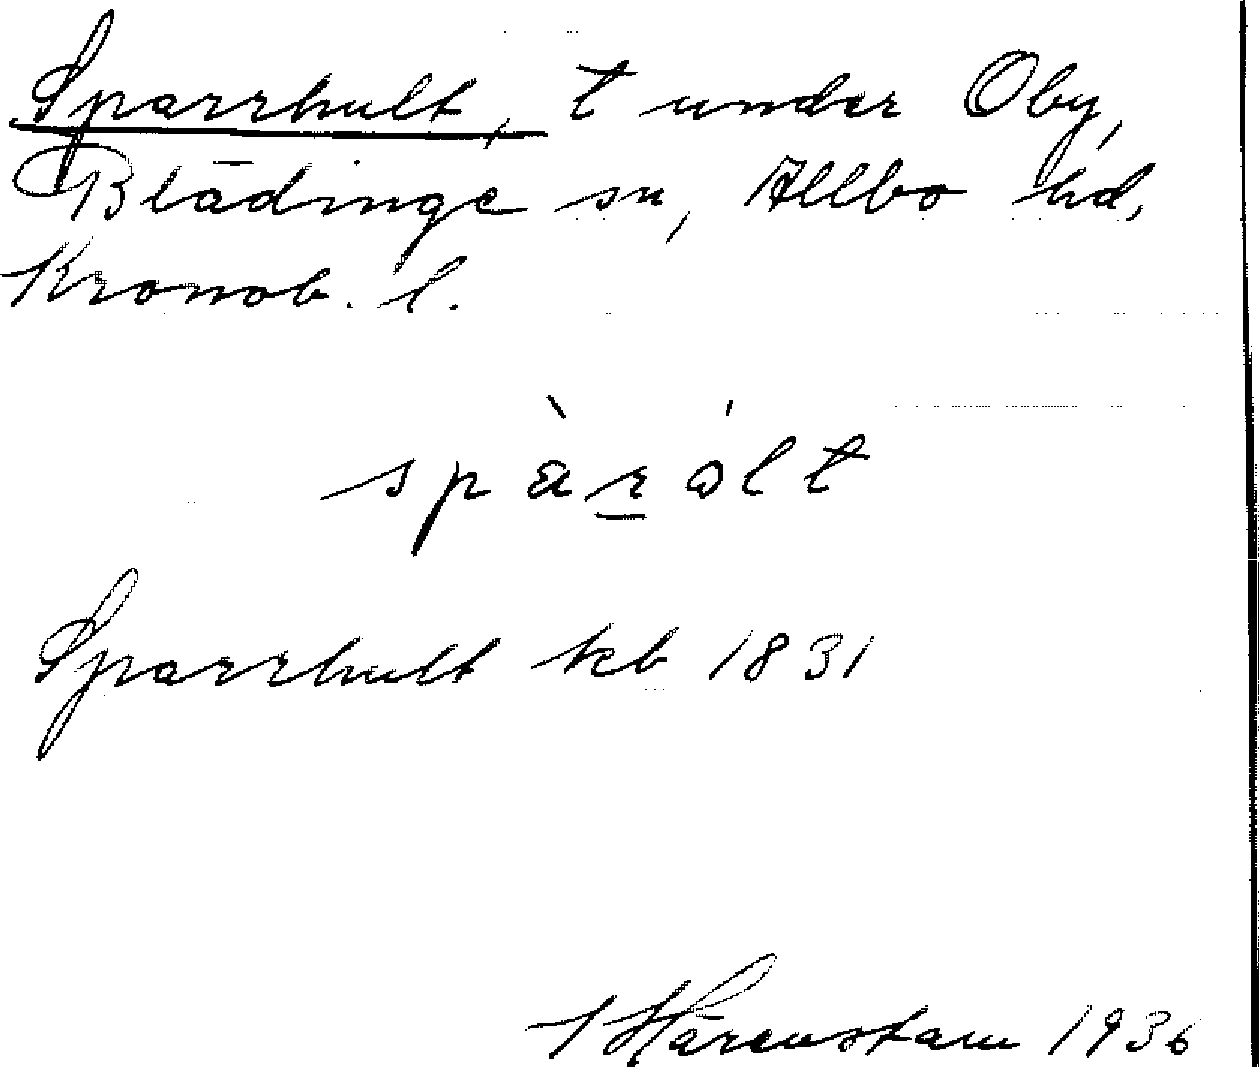 Sparrhult, t under Oby,
Blädinge sn, Allbo hd,
Kronob. l.
spàr̲ólt
Sparrhult kb 1831
Härenstam 1936